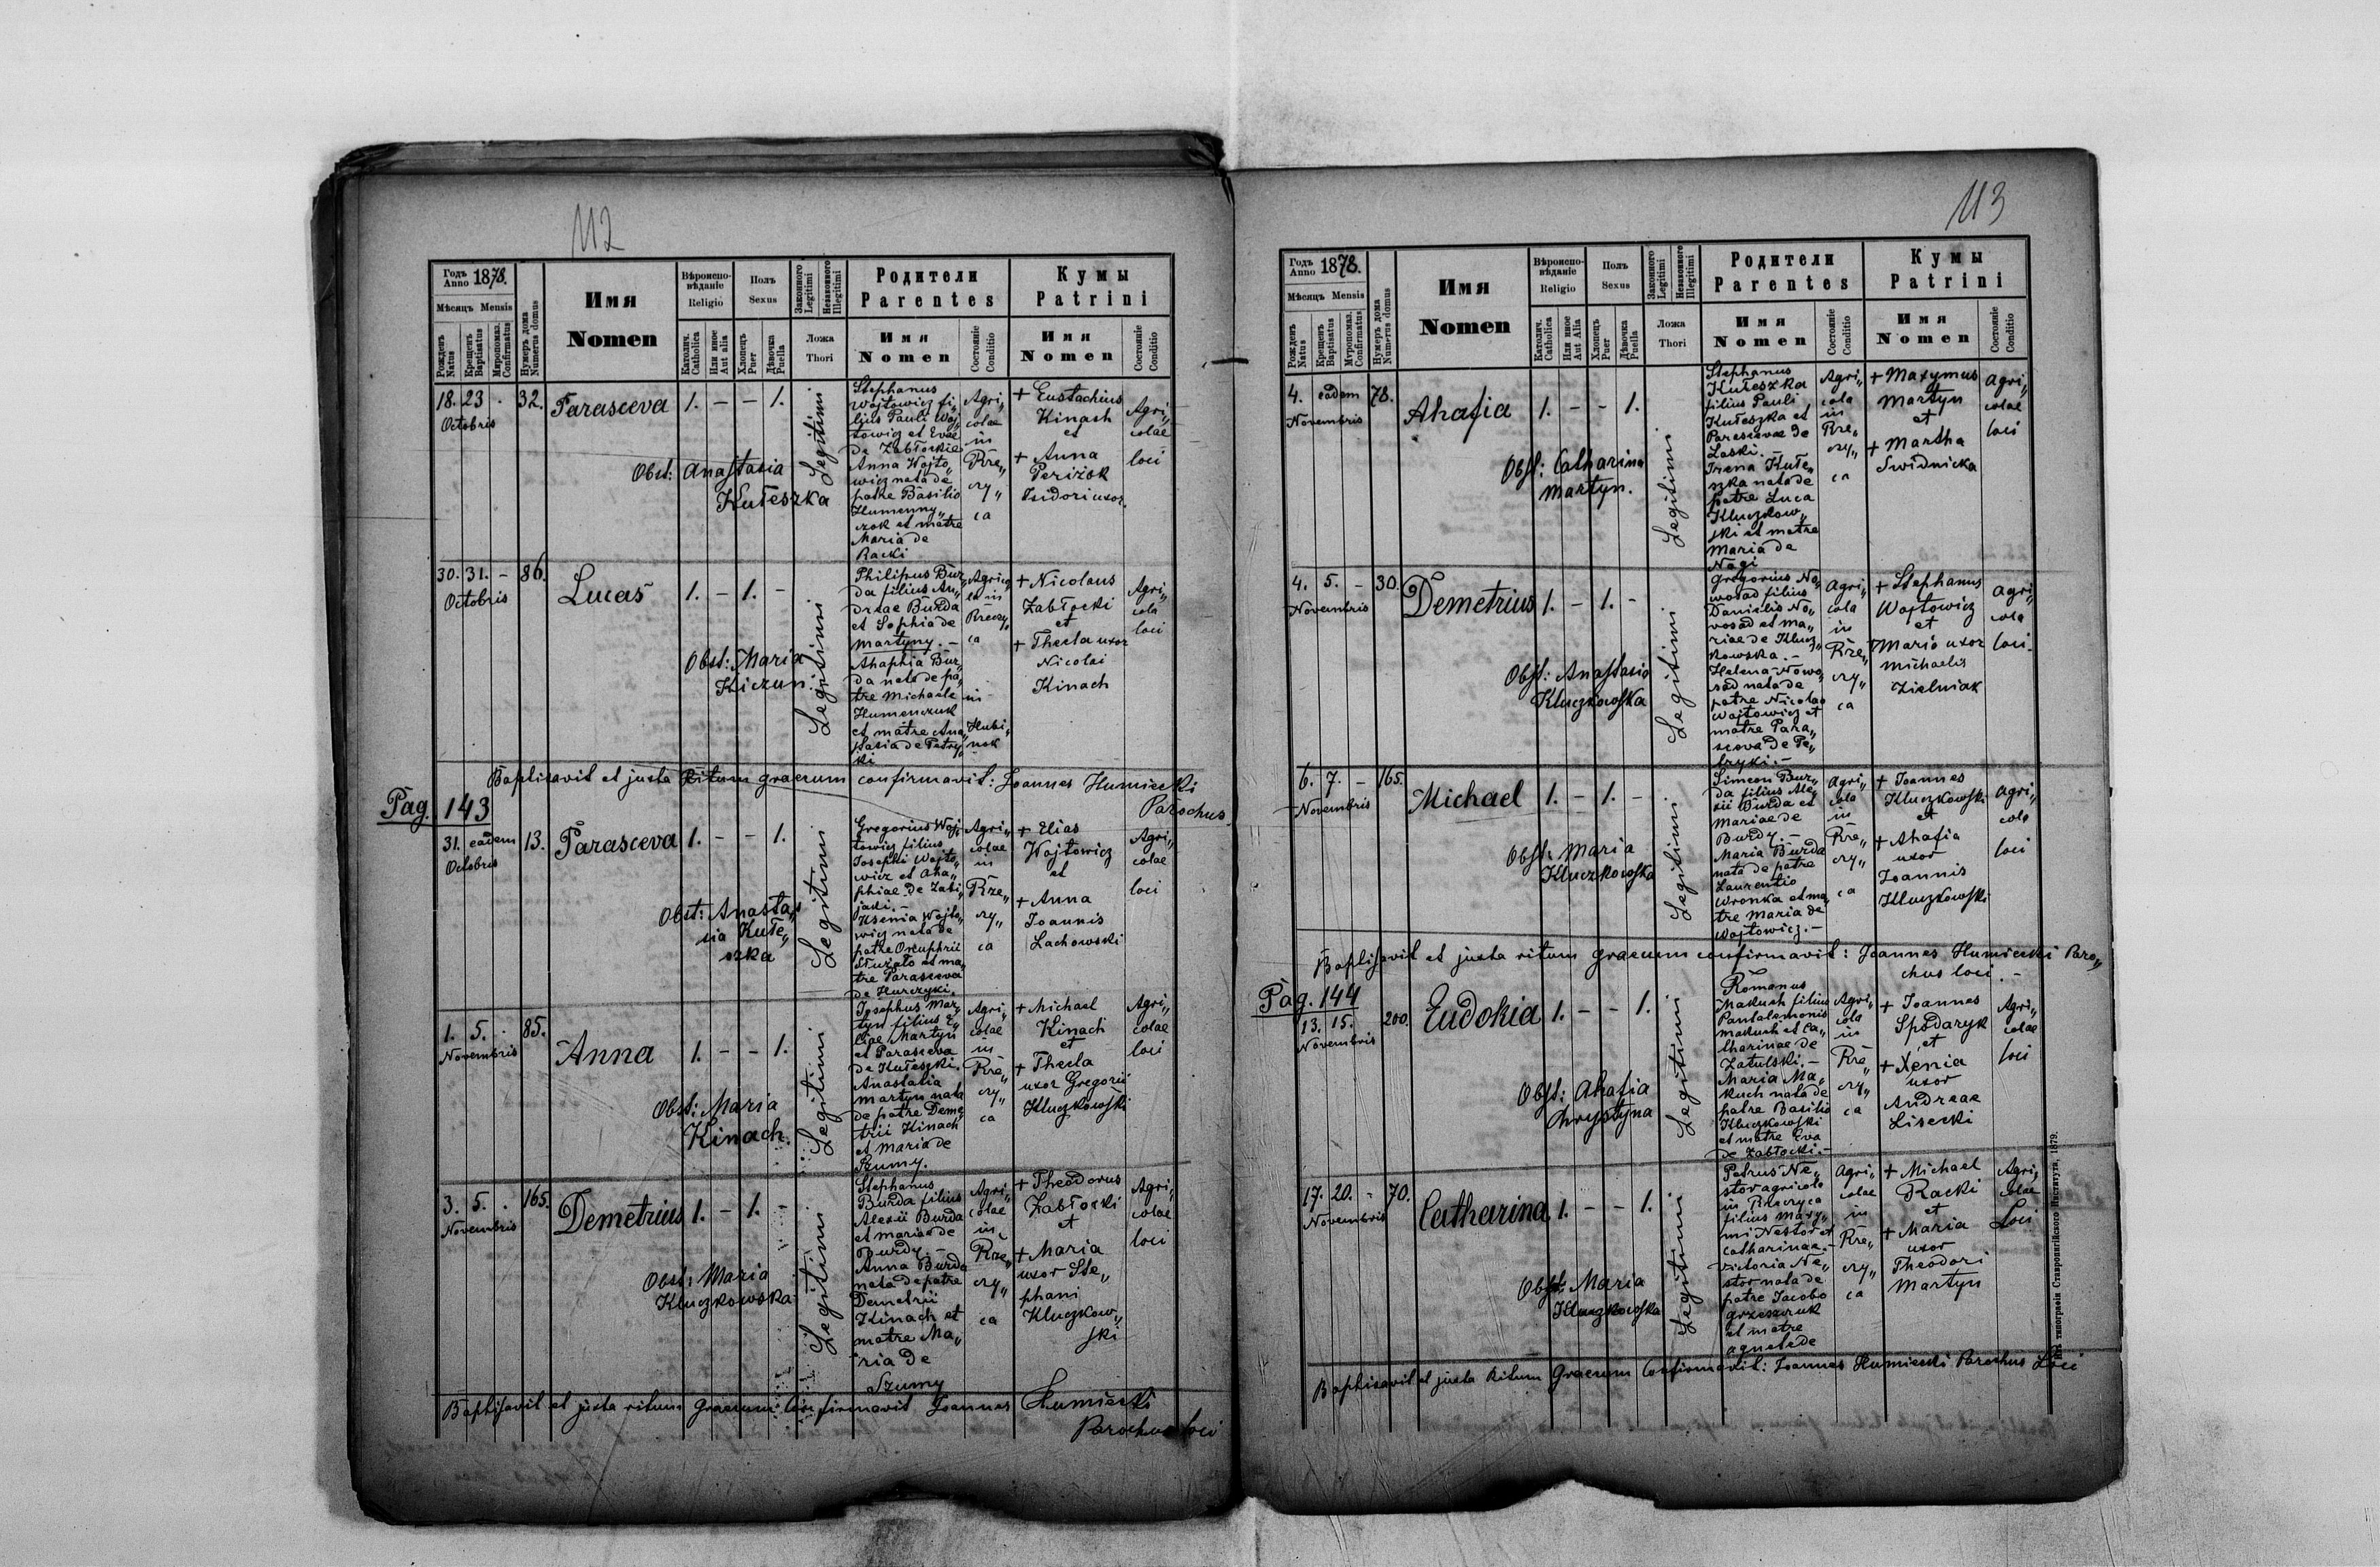 112
Годъ Anno 1878.
Мѣсяцъ Mensis
Рожденъ Natus
Крещенъ Baptisatus
Миропомаз. Confirmatus
Нумеръ дома Numerus domus
Имя
Nomen
Вѣроиспо-
вѣданіе
Religio
Католич. Catholica
Или иное Aut Alia
Полъ
Sexus
Хлопецъ Puer
Дѣвочка Puella
Законного Legitimi
Незаконного Illegitimi
Ложа
Thori
Родители
Parentes
Имя
Nomen
Состояніе Conditio
Кумы
Patrini
Имя
Nomen
Состояніе Conditio
18. 23 . 32.
Octobris
Parasceva 1. - - 1.
Obst: Anastasia
Kułeszka
Legitimi
Stephanus
Wojtowicz fi„
lius Pauli Woj„
towicz et Evae
de Zabłockie
Anna Wojto„
wicz nata de
patre Basilio
Humenny„
czok et matre
Maria de
Racki
Agri„
colae
in
Rze„
czy„
ca
+ Eustachius
Kinach
et
+ Anna
Isidori uxor.
Agri„
colae
loci
30. 31. - 86.
Octobris
Lucas 1. - 1. -
Obst: Maria
Kiczun
Legitimi
Philipus Bur„
da filius An„
dreae Burda
et Sophia de
Martyny. -
Ahaphia Bur„
da nata de pa„
tre Michaele
Humenczuk
et matre Ana„
stasia de Petry„
ki
in
+ Nicolaus
Zabłocki
et
+ Thecla uxor
Nicolai
Kinach
Agri„
cola
loci
Baptisavit et juxta Ritum graecum confirmavit: Joannes Humiecki
Parochus
Pag. 143
31. eadem 13.
Octobris
Parasceva 1. - - 1.
Obst: Anasta„
sia Kułe„
szka
Legitimi
Gregorius Woj„
towicz filius
Josephi Wojto„
wicz et Aha„
phiae de Zabi„
jaki. -
Ksenia Wojto„
wicz nata de
patre Onuphrii
et ma„
tre Parasceva
de Hurczyki.
Agri„
colae
in
Rze„
czy„
ca
+ Elias
Wojtowicz
et
+ Anna
Joannis
Lachowski
Agri„
colae
loci
1. 5. . 85.
Novembris
Anna 1. - - 1.
Obst: Maria
Kinach.
Legitimi
Josephus Mar„
tyn filius E„
liae Martyn
et Parasceva
de Kułeszki.
Anastasia
Martyn nata
de patre Deme„
trii Kinach
et Maria de
Szumy.
Agri„
colae
in
Rze„
czy„
ca
+ Michael
Kinach
et
+ Thecla
uxor Gregorii
Kluczkowski
Agri„
colae
loci
3. 5. . 165.
Novembris
Demetrius 1. - 1. -
Obst: Maria
Kluczkowska
Legitimi
Stephanus
Burda filius
Alexii Burda
et Mariae de
Burdy. -
Anna Burda
nata de patre
Demetrii
Kinach et
matre Ma„
ria de
Szumy
Agri„
colae
in
Rze„
czy„
ca
+ Theodorus
Zabłocki
et
+ Maria
uxor Ste„
phani
Kluczkow„
ski
Agri„
colae
loci
Baptisavit et juxta ritum Graecum Confirmavit Joannes Humiecki
Parochus loci
113
Годъ Anno 1878.
Мѣсяцъ Mensis
Рожденъ Natus
Крещенъ Baptisatus
Мѵропомаз. Confirmatus
Нумеръ дома Numerus domus
Имя
Nomen
Вѣроиспо-
вѣданіе
Religio
Католич. Catholica
Или иное Aut Alia
Полъ
Sexus
Хлопецъ Puer
Дѣвочка Puella
Законного Legitimi
Незаконного Illegitimi
Ложа
Thori
Родители
Parentes
Имя
Nomen
Состояніе Conditio
Кумы
Patrini
Имя
Nomen
Состояніе Conditio
4. eadem 78.
Novembris
Ahafia 1. - - 1.
Obst: Catharina
Martyn.
Legitimi
Stephanus
Kułeszka
filius Pauli
Kułeszka et
Parascevae de
Laski. -
Irena Kułe„
szka nata de
patre Luca
Kluczkow„
ski et matre
Maria de
Nagi
Agri„
cola
in
Rze„
czy„
ca
+ Maxymus
Martyn
et
+ Martha
Swidnicka
Agri„
colae
loci
4. 5. - 30.
Novembris
Demetrius 1. - 1. -
Obst: Anastasia
Kluczkowska
Legitimi
Gregorius No„
wosad filius
Danielis No„
wosad et Ma„
riae de Klucz„
kowska. -
Helena Nowo„
sad nata de
patre Nicolao
Wojtowicz et
matre Para„
sceva de Pe„
tryki. -
Agri„
cola
in
Rze„
czy„
ca
+ Stephanus
Wojtowicz
et
Maria uxor
Michaelis
Zielniak
Agri„
cola
loci.
6. 7. - 165.
Novembris
Michael 1. - 1. -
Obst: Maria
Kluczkowska
Legitimi
Simeon Bur„
da filius Ale„
xii Burda et
Mariae de
Burdy. -
Maria Burda
nata de patre
Laurentio
Wronka et ma„
tre Maria de
Wojtowicz. -
Agri„
cola
in
Rze„
czy„
ca
+ Joannes
Kluczkowski
et
+ Ahafia
uxor
Joannis
Kluczkowski
Agri„
cola
loci
Baptisavit et juxta ritum graecum confirmavit: Joannes Humiecki Paro„
chus loci. -
Pag. 144
13. 15. 200.
Novembris
Eudokia 1. - - 1.
Obst: Ahafia
Chrystyna
Legitimi
Romanus
Makuch filius
Pantalemonis
Makuch et Ca„
tharinae de
Zatulski. -
Maria Ma„
kuch nata de
patre Basilio
Kluczkowski
et matre Eva
de Zabłocki. -
Agri„
cola
in
Rze„
czy„
ca
+ Joannes
Spodaryk
et
+ Xenia
uxor
Andreae
Lisecki
Agri„
colae
loci
17. 20. - 70.
Novembris
Catharina 1. - - 1.
Obst: Maria
Kluczkowska
Legitimi
Petrus Ne„
stor agricola
in Rzeczyca
filius Maxy„
mi Nestor et
Catharinae. -
Victoria Ne„
stor nata de
patre Jacobo
Grzeszczuk
et matre
Agnete de
Agri„
colae
in
Rze„
czy„
ca
+ Michael
Racki
et
+ Maria
uxor
Theodori
Martyn
Agri„
colae
Loci
Baptisavit et juxta Ritum Graecum Confirmavit: Joannes Humiecki Parochus Loci
типографіи Ставропигійского Института, 1879.